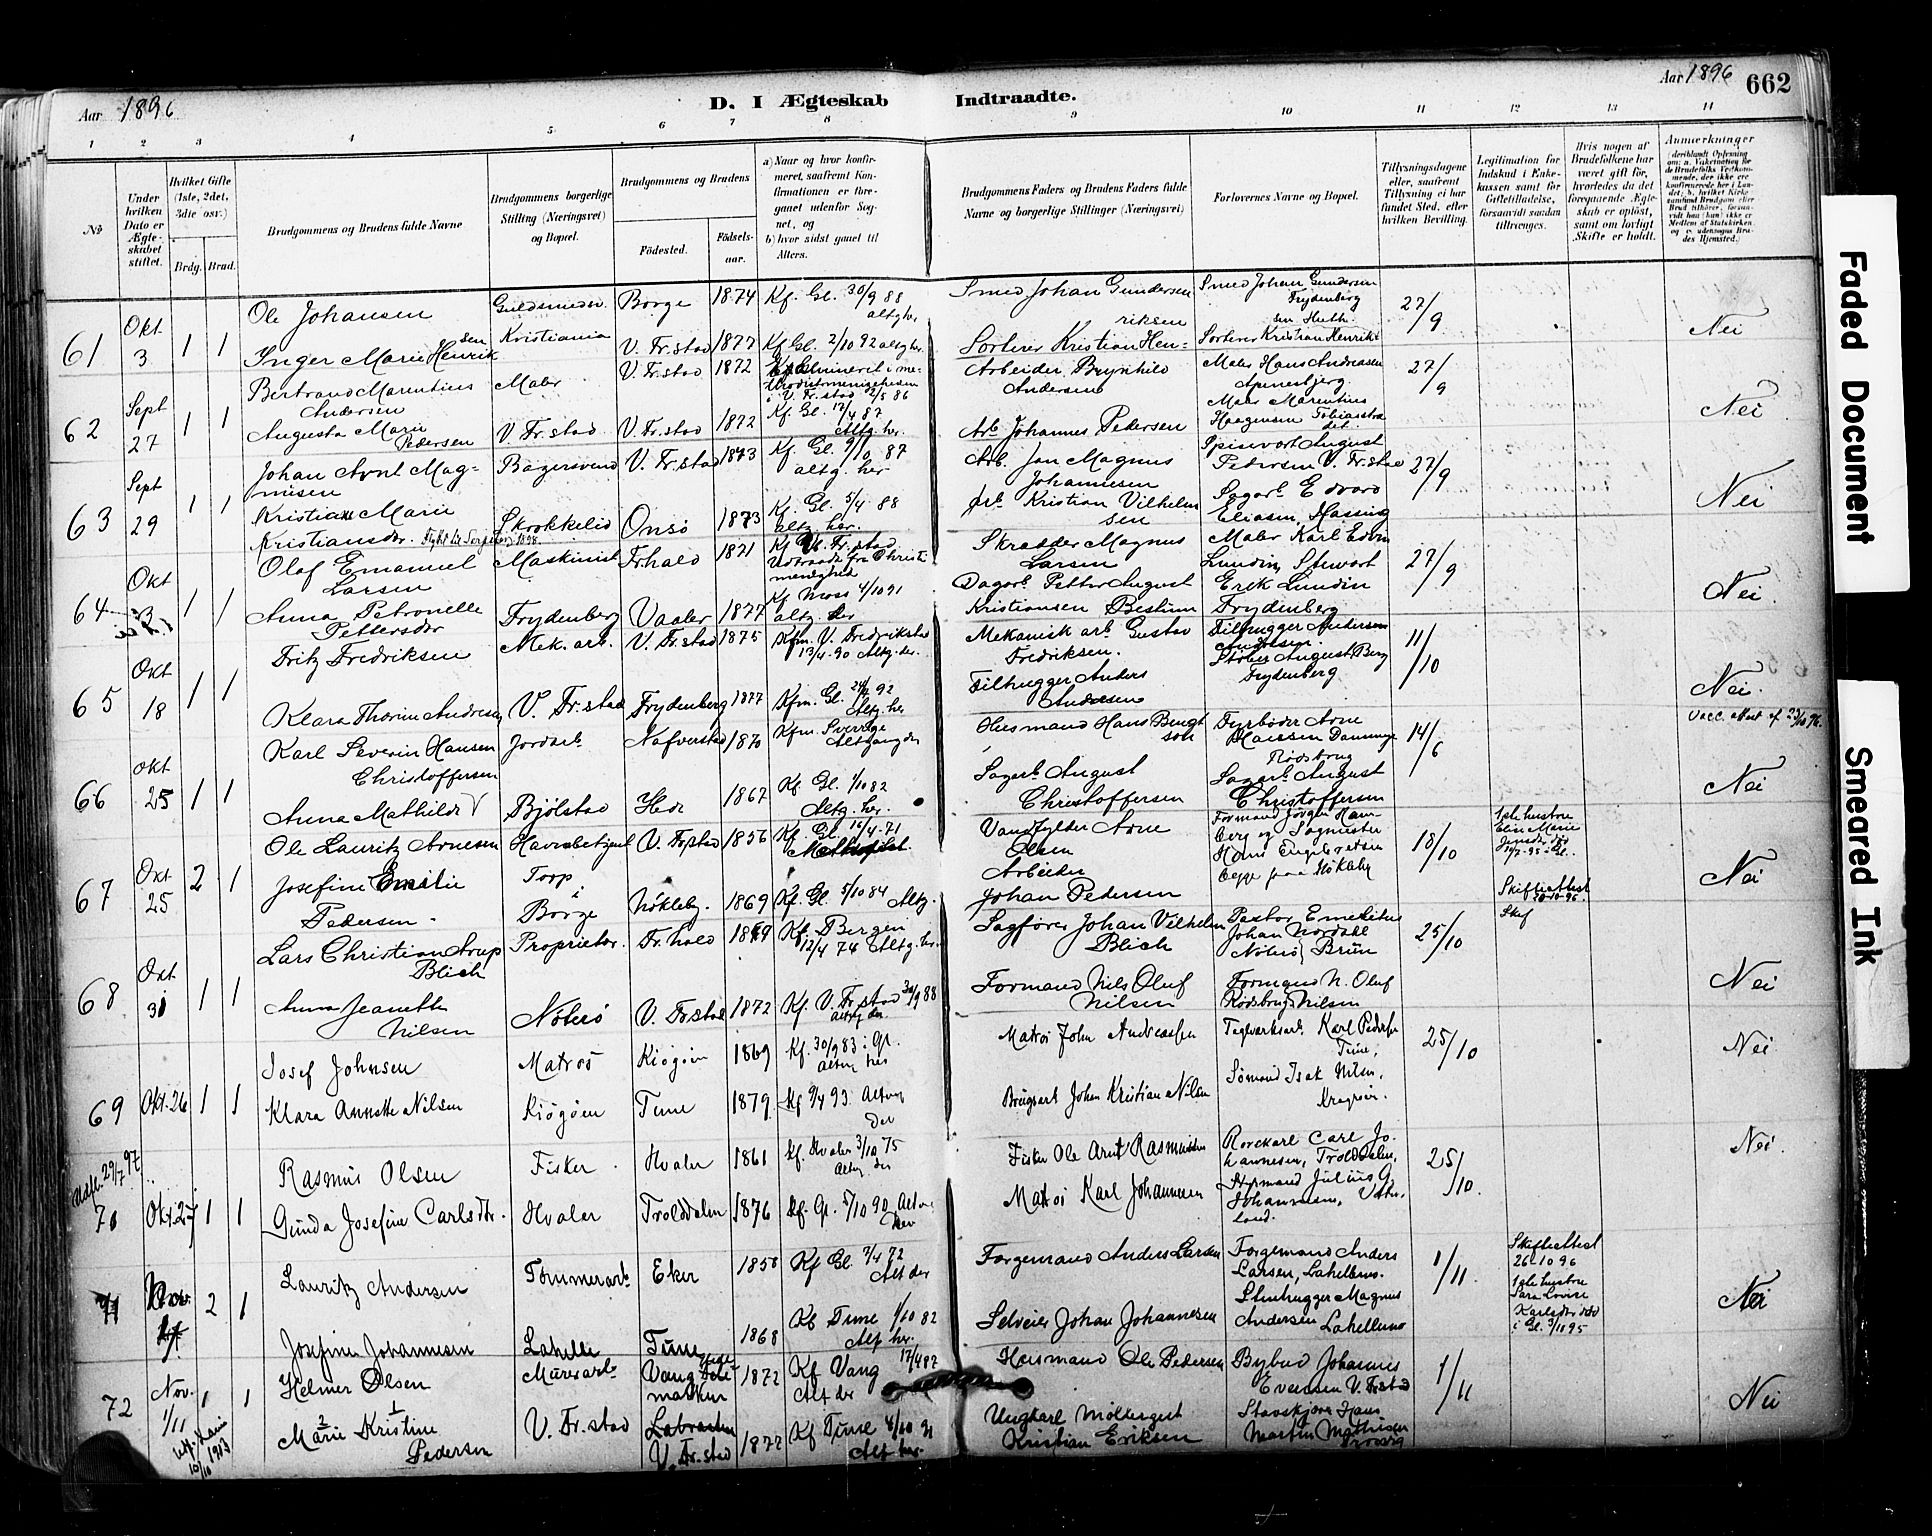 Aar 1896
D. I Ægteskab Indtraadte.
Aar 1896 662
1 2 3 4 5 6 7 8 9 10 11 12 13 14
No
Under hvilken Dato er Ægteskabet stiftet.
Hvilket Gifte (1ste, 2det, 3die osv.)
Brdg. Brud.
Brudgommens og Brudens fulde Navne
Brudgommens borgerlige Stilling (Næringsvei) og Bopæl.
Brudgommens og Brudens
Fødested. Fødselsaar.
a) Naar og hvor konfirmeret, saafremt Konfirmationen er foregaaet udenfor Sognet, og
b) hvor sidst gaaet til Alters.
Brudgommens Faders og Brudens Faders fulde Navne og borgerlige Stillinger (Næringsvei)
Forlovernes Navne og Bopæl.
Tillysningsdagene eller, saafremt Tillysning ei har fundet Sted, efter hvilken Bevilling.
Legitimation for Indskud i Enkekassen samt for Giftetilladelse, forsaavidt saadan tiltrænges.
Hvis nogen af Brudefolkene har været gift før, hvorledes da det foregaaende Ægteskab er opløst, samt om lovligt Skifte er holdt.
Anmerkninger
61 Okt 3 1 1
Ole Johansen Guldsmedsv. Borge 1874 Kf. Gl. 30/9 88 altg her Smed Johan Gundersen Smed Johan Gundersen Frydenberg 27/9 Nei
Inger Marie Henriksen Kristiania V. Fr.stad 1877 Kf Gl. 2/10 92 altg her. Sorterer Kristian Henriksen Sorterer Kristian Henrik
62 Sept 27 1 1
Bertrand Marentius Andersen Maler V. Fr.stad 1872 i V. Fr.stad 2/5 86 Arbeider Brynhild Andersen Maler Hans Andreassen 27/9 Nei
Augusta Marie Pedersen V. Fr.stad. V. Fr.stad 1872 Kf. Gl. 17/4 87 Altg. her. Arb Johannes Pedersen Maler Marentius Haagensen
63 Sept 29 1 1
Johan Arnt Magnusen Bagersvend V. Fr.stad 1873 Kf. Gl. 9/10 87 altg. her Arb. Jan Magnus Johannesen Spisevært August Pedersen V. Fr.stad 27/9 Nei
Kristiane Marie Kristiansdr. Skrokkelid Onsø 1873 Kf. Gl. 5/4 88 altg. her. Arb. Kristian Vilhelmsen Sagarb. Edvard Eliasen, Hassing
64 Okt 3 1 1
Olaf Emanuel Larsen Maskinist Fr.hald 1871 Kf. V. Fr.stad Skrædder Magnus Larsen Maler Karl Edvin Lundin, Stuvart 27/9 Nei.
Anna Petronelle Pettersdr Frydenberg Vaaler 1877 Kf Moss 4/10 91 altg. der Dagarb. Petter August Kristiansen Bestum Erik Lundin Frydenberg
65 Okt 18 1 1
Fritz Fredriksen Mek. arb. V. Fr.stad 1875 Kfm. V. Fredrikstad 13/4 90 Altg. der. Mekanisk arb. Gustav Fredriksen. Filhugger Andersen 11/10 Nei.
Klara Thorine Andresen V. Fr.stad Frydenberg 1877 Kfm. Gl. 92 Altg. her Filhugger Anders Andresen August Berg Frydenberg
66 Okt 25 1 1
Karl Severin Hansen Jordarb Nafverstad 1870 Kfm. Sverige Altgang der Husmand Hans Bengtson Fyrbøder Arne Rødsbrug 14/6 Nei
Anna Mathilde Christoffersen Bjølstad Hede 1867 Kf. Gl. 1/10 82 Altg. her. Sagarb. August Christoffersen Sagarb. August Christoffersen
67 Okt 25 2 1
Ole Lauritz Arnesen Havnebetjent V. Frstad 1856 Kf. Gl. 16/4 71 Arne Olsen Formand Jørgen Hamberg og Sagmester Hans Engebretsen begge paa Nøkleby 18/10 1ste hustru Elen Marie Nei
Josefine Emilie Pedersen. Torp i Borge Nøkleby. 1869 Kf. Gl. 5/10 84 Altg. Arbeider Johan Pedersen Skifteattest 20-10-96.
68 Okt 31 1 1
Lars Christian Arup Blich Proprietær. Fr.hald Kf Bergen 12/4 74 Altg. her. Sagfører Johan Vilhelm Blich Pastor Emeritus Johan Nordahl Brun 25/10 Nei
Anna Jeanette Nilsen Nøterø V. Fr.stad 1872 Kf. V. Fr.stad 30/9 88 altg der Formand Nils Oluf Nilsen Formand N. Oluf Nilsen Rødsbrug
69 Okt. 26 1 1
Josef Johnsen Matros Kiøgøen 1869 Kf. 30/9 83 i Gl. altog her Matros John Andreassen Teglverksarb. Karl Peders Tune; 25/10 Nei
Klara Annette Nilsen Kiøgøen Tune 1879. Kf 9/4 93. Altog der Brugsarb. Johan Kristian Nilsen Sømand Isak Nilsen, Kragerøi.
Utdsk. 29/7 97
70 Okt. 27 1 1
Rasmus Olsen Fisker Hvaler 1861 Kf. Hvaler 3/10 75 Altog der Fisker Ole Arnt Rasmussen Rorskarl Carl Johannesen, Trolddalen, 25/10. Nei.
Gunda Josefine Carlsdtr. Hvaler Trolddalen 1876 Kf. Gl. 5/10 90 Altog her Matros Karl Johannesen Styrmand Julius G. Johannesen,
71 Nov. 2 1
Lauritz Andersen Tømmerarb. Eker 1858 Kf Gl. 7/4 72 Alt der Forgemand Anders Larsen Forgemand Anders Larsen, Lahellemo. 1/11 Skifteattest 26-10 96 1ste hustru Sara Lovise Karlsdtr død i Gl. 3/10 95 Nei
Josefine Johannesen Lahelle Tune 1868 Kf Tune 1/10 82 Alt her. Selveier Johan Johannesen Stenhugger Magnus Andersen Lahellemo
72 Nov. 1/11 1 1
Helmer Olsen Murerarb. Vang Hedemarken 1872 Kf Vang 17/4 87 Alt der Husmand Ole Pedersen Bybud Johannes Evensen V. Fr.stad 1/11 Nei
Marie Kristine Pedersen V. Fr.stad V. Fr.stad 1877 Kf Tune 4/10 91 Alt her. Ungkarl Møllergut Kristian Eriksen Stavskjører Hans Martin Mathisen
10/10 1903
Faded Document
Smeared Ink